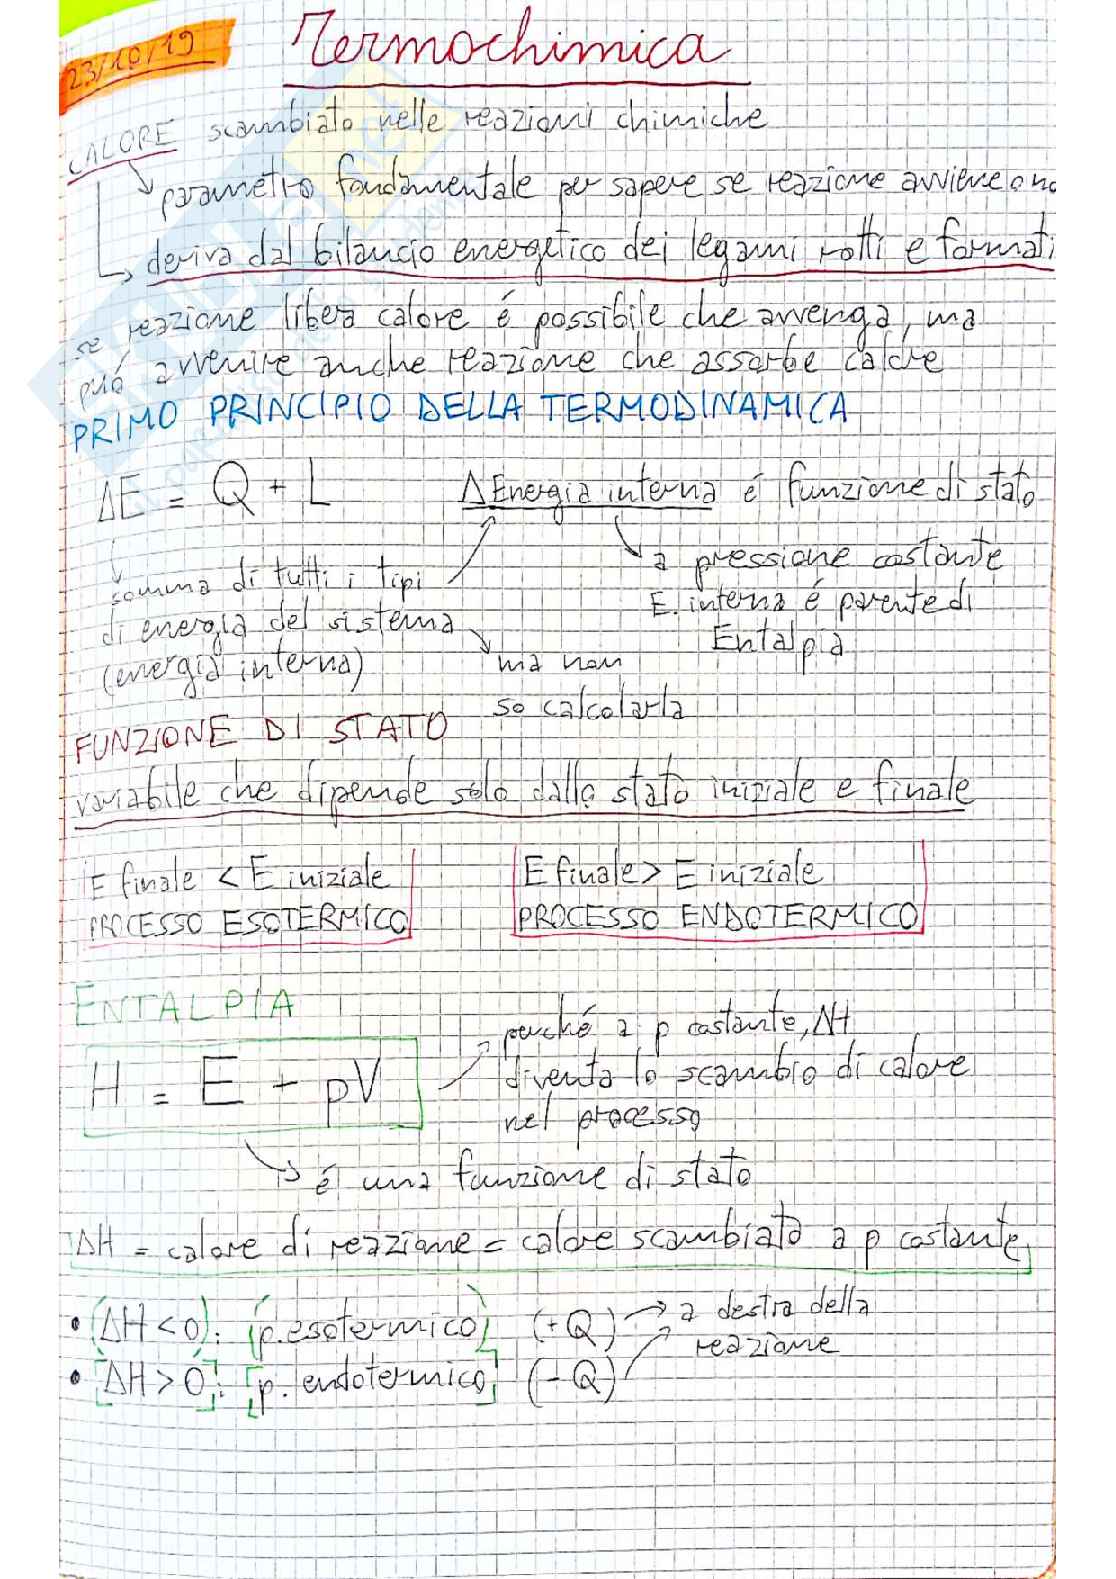 23/10/19
Termochimica
CALORE scambiato nelle reazioni chimiche
parametro fondamentale per sapere se reazione avviene o no
deriva dal bilancio energetico dei legami rotti e formati
se reazione libera calore é possibile che avvenga, ma
può avvenire anche reazione che assorbe calore
PRIMO PRINCIPIO DELLA TERMODINAMICA
ΔE = Q + L
ΔEnergia interna é funzione di stato
somma di tutti i tipi
di energia del sistema
(energia interna)
a pressione costante
E. interna é parente di
Entalpia
ma non
so calcolarla
FUNZIONE DI STATO
variabile che dipende solo dallo stato iniziale e finale
E finale < E iniziale
PROCESSO ESOTERMICO
E finale > E iniziale
PROCESSO ENDOTERMICO
ENTALPIA
H = E + pV
perché a p costante, ΔH
diventa lo scambio di calore
nel processo
é una funzione di stato
ΔH = calore di reazione = calore scambiato a p costante
• (ΔH < 0): (p. esotermico) (+Q)
a destra della
reazione
• [ΔH > 0]: [p. endotermico] (-Q)